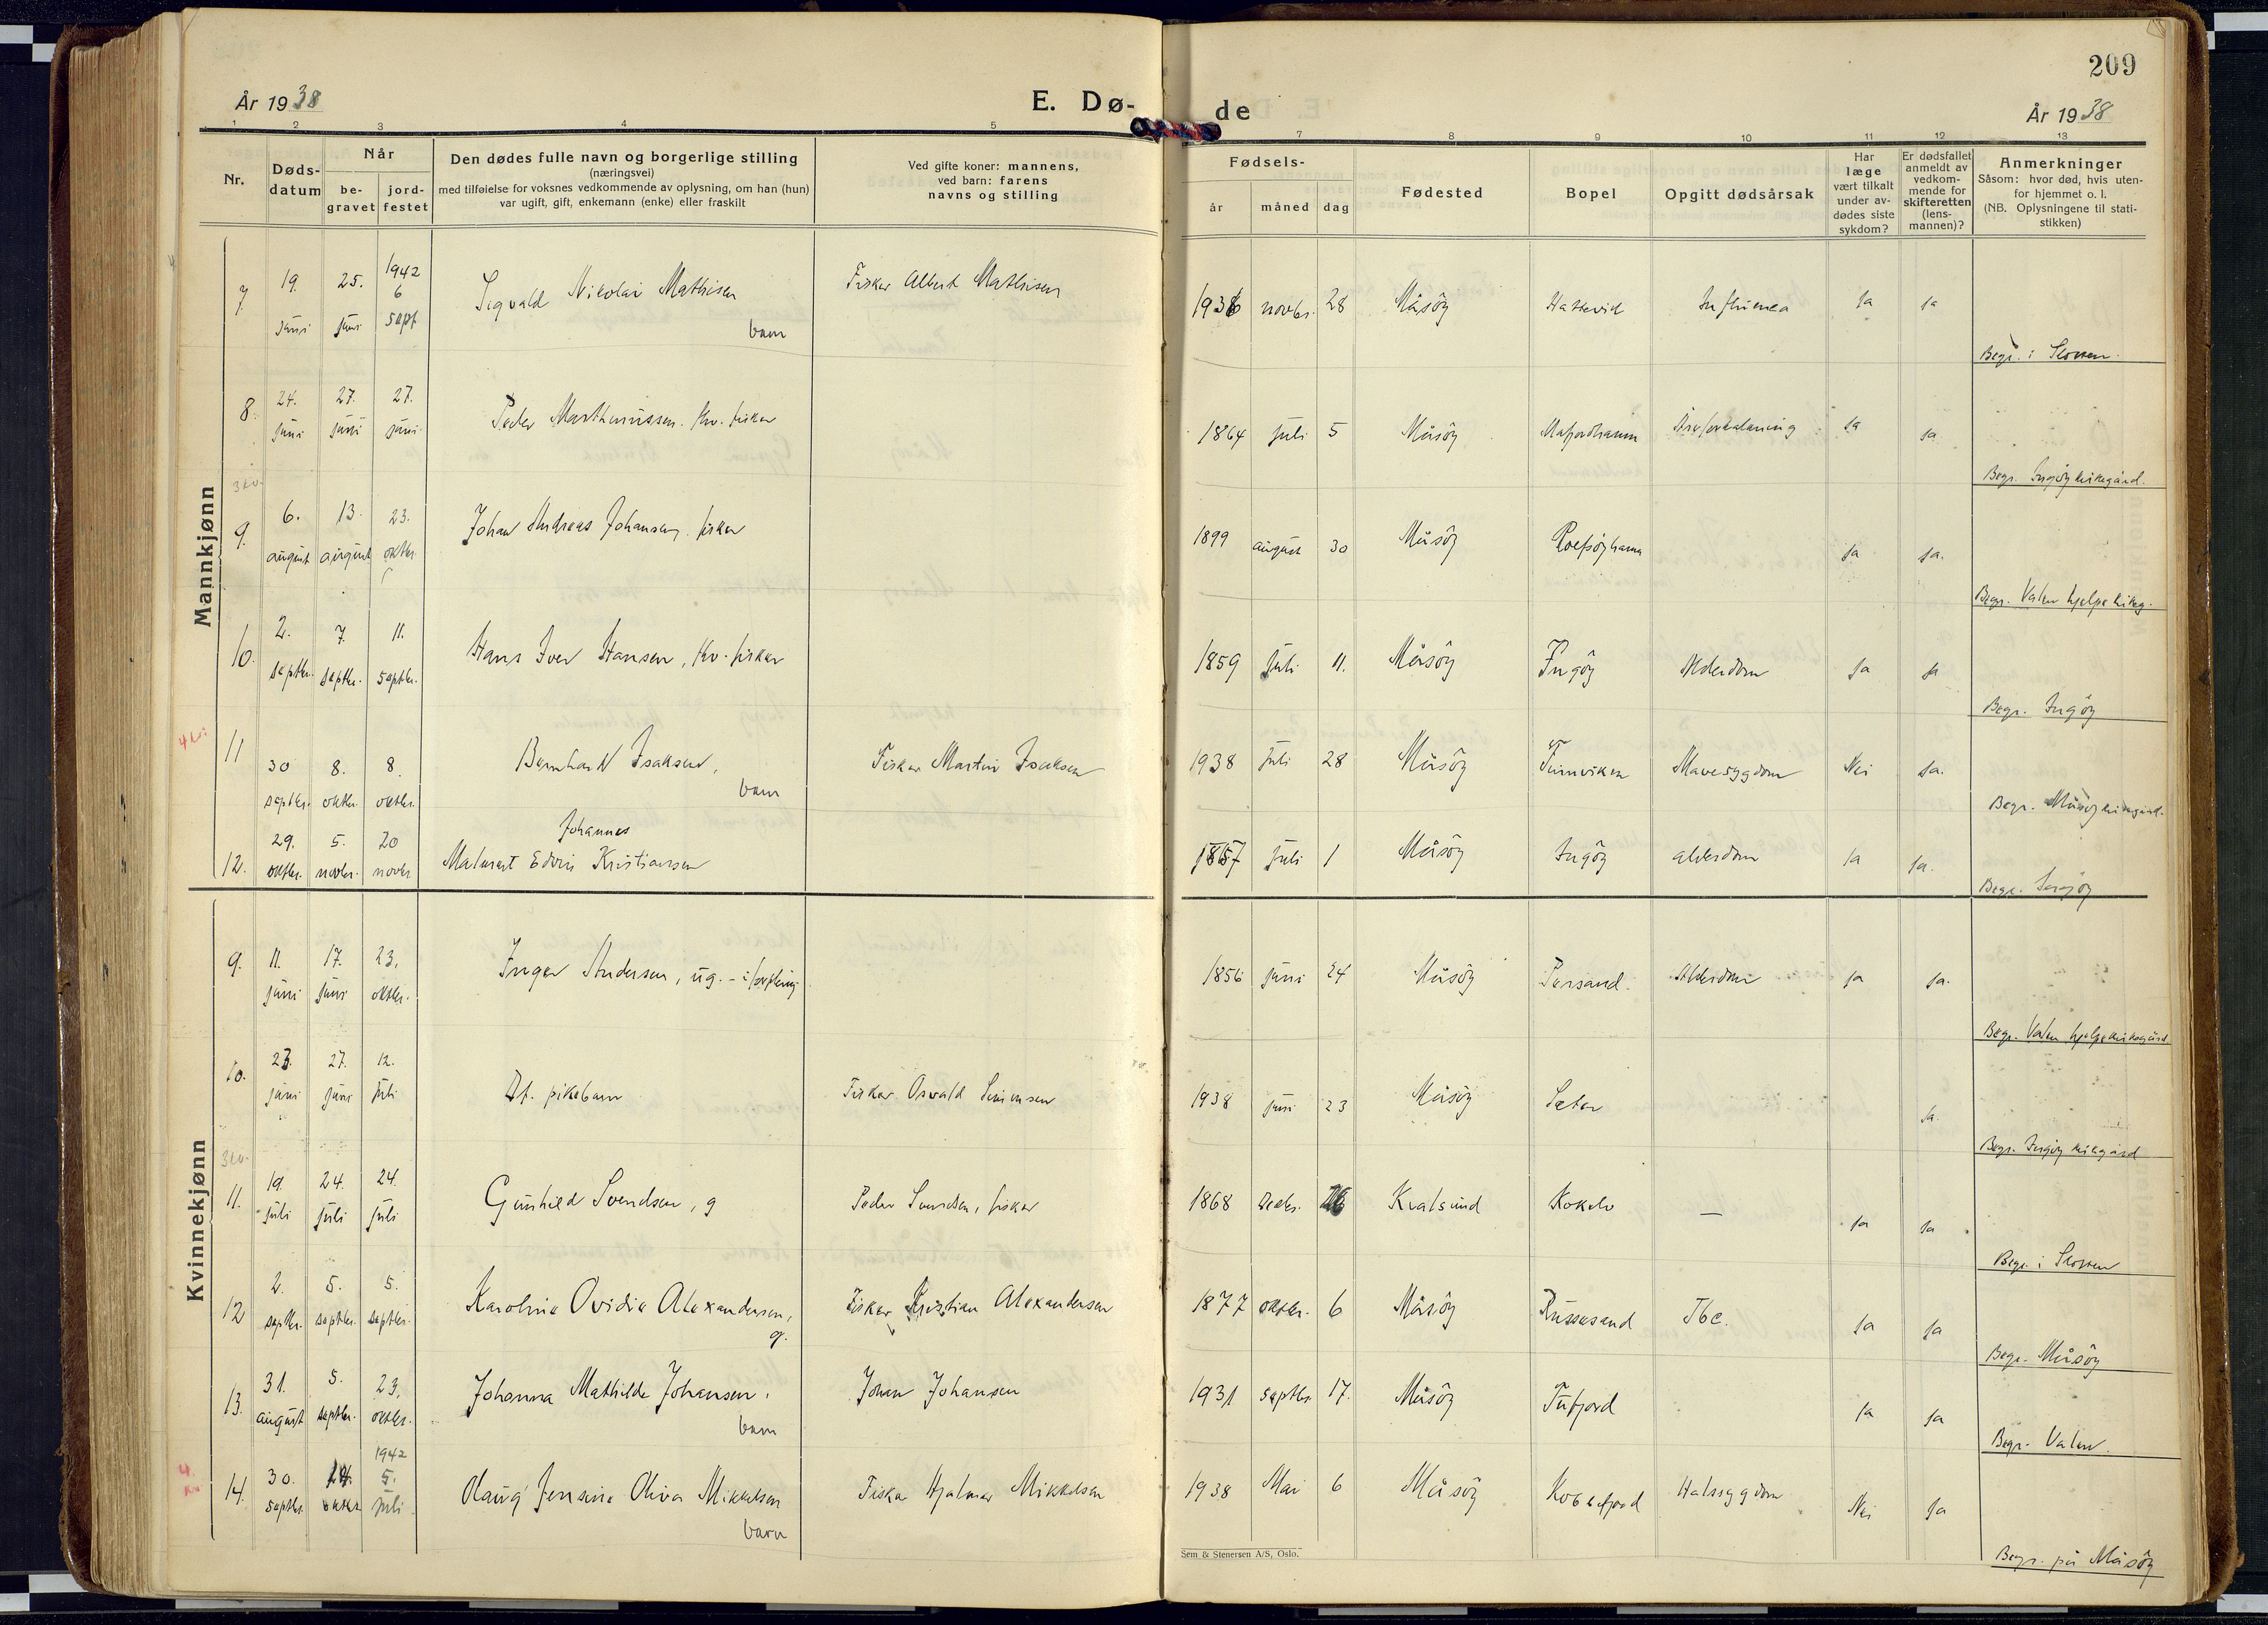 209
År 1938
E. Dø-
de
År 1938
1 2 3 4 5 7 8 9 10 11 12 13
Nr.
Døds-
datum
Når
be-
gravet
jord-
festet
Den dødes fulle navn og borgerlige stilling
(næringsvei)
med tilføielse for voksnes vedkommende av oplysning, om han (hun)
var ugift, gift, enkemann (enke) eller fraskilt
Ved gifte koner: mannens,
ved barn: farens
navns og stilling
Fødsels-
år måned dag
Fødested
Bopel
Opgitt dødsårsak
Har
læge
vært tilkalt
under av-
dødes siste
sykdom?
Er dødsfallet
anmeldt av
vedkom-
mende for
skifteretten
(lens-
mannen)?
Anmerkninger
Såsom: hvor død, hvis uten-
for hjemmet o. l.
(NB. Oplysningene til stati-
stikken)
Mannkjønn
7. 19. juni 25. juni 1942 6 sept
Sigvald Nikolai Mathisen
barn
Fisker Albert Mathisen
1936 novbr. 28 Måsöy Hattevik Influenza Ja Ja
Begr. i Slotten.
8. 24. juni 27. juni 27. juni
Peder Marthinussen. fhv. fisker
1864 juli 5 Måsöy Mafjordhamn Åreforkalkning Ja Ja
Begr. Ingöy kirkegård.
9. 6. august 13. august 23. oktbr.
Johan Andreas Johansen, fisker
1899 august 30 Måsöy Rolfsöyhamn Ja Ja.
Begr. Valen hjelpekirkeg.
10. 2. septbr. 7. septbr. 11. septbr.
Hans Iver Hansen, fhv. fisker
1859 juli 11. Måsöy Ingöy Alderdom Ja Ja
Begr. Ingöy
11 30 septbr. 8. oktbr. 8. oktbr.
Bernhard Isaksen,
barn
Fisker Martin Isaksen
1938 juli 28 Måsöy Tunviken Mavesygdom Nei Ja.
Begr. Måsöy kirkegård.
12. 29. oktbr. 5. novbr. 20 novbr
Johannes
Edvin Kristiansen
1867 juli 1 Måsöy Ingöy alderdom Ja Ja.
Begr. Ingöy
Kvinnekjønn
9. 11. juni 17. juni 23. oktbr.
Inger Andersen, ug. - i forpleining
1856 juni 24 Måsöy Persand. Alderdom Ja Ja.
Begr. Valen hjelpekirkegård
10. 23. juni 27. juni 12. juli
Df. pikebarn
Fisker Osvald Simensen
1938 juni 23 Måsöy Sæter Ja.
Begr. Ingöy kirkegård
11. 19. juli 24. juli 24. juli
Gunhild Svendsen, g
Peder Svendsen, fisker
1868 Decbr. Kvalsund Kokelv — Ja Ja
Begr. i Slotten
12 2. septbr. 5. septbr. 5. septbr.
Karoline Ovidie Alexandersen,
g.
Fisker Kristian Alexandersen
1877 oktbr. 6 Måsöy Russesand Tbc. Ja Ja
Begr. Måsöy
13. 31. august 5. septbr. 23. oktbr.
Johanna Mathilde Johansen.
barn
Johan Johansen
1931 septbr 17. Måsöy Tufjord Ja Ja
Begr. Valen.
14. 30. septbr. 14. oktbr 1942 5. juli
Olaug Jensine Oliva Mikkelsen
barn
Fisker Hjalmar Mikkelsen
1938 Mai 6 Måsöy Kobbefjord Halssygdom Nei Ja
Begr. på Måsöy
Sem & Stenersen A/S, Oslo.